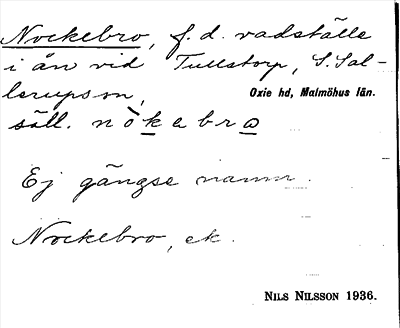 Nockebro, f. d. vadställe
i ån vid Tullstorp, S. Sal-
lerups sn,
Oxie hd, Malmöhus län.
säll. nòkebro
Ej gängse namn.
Nockebro, ek.
NILS NILSSON 1936.